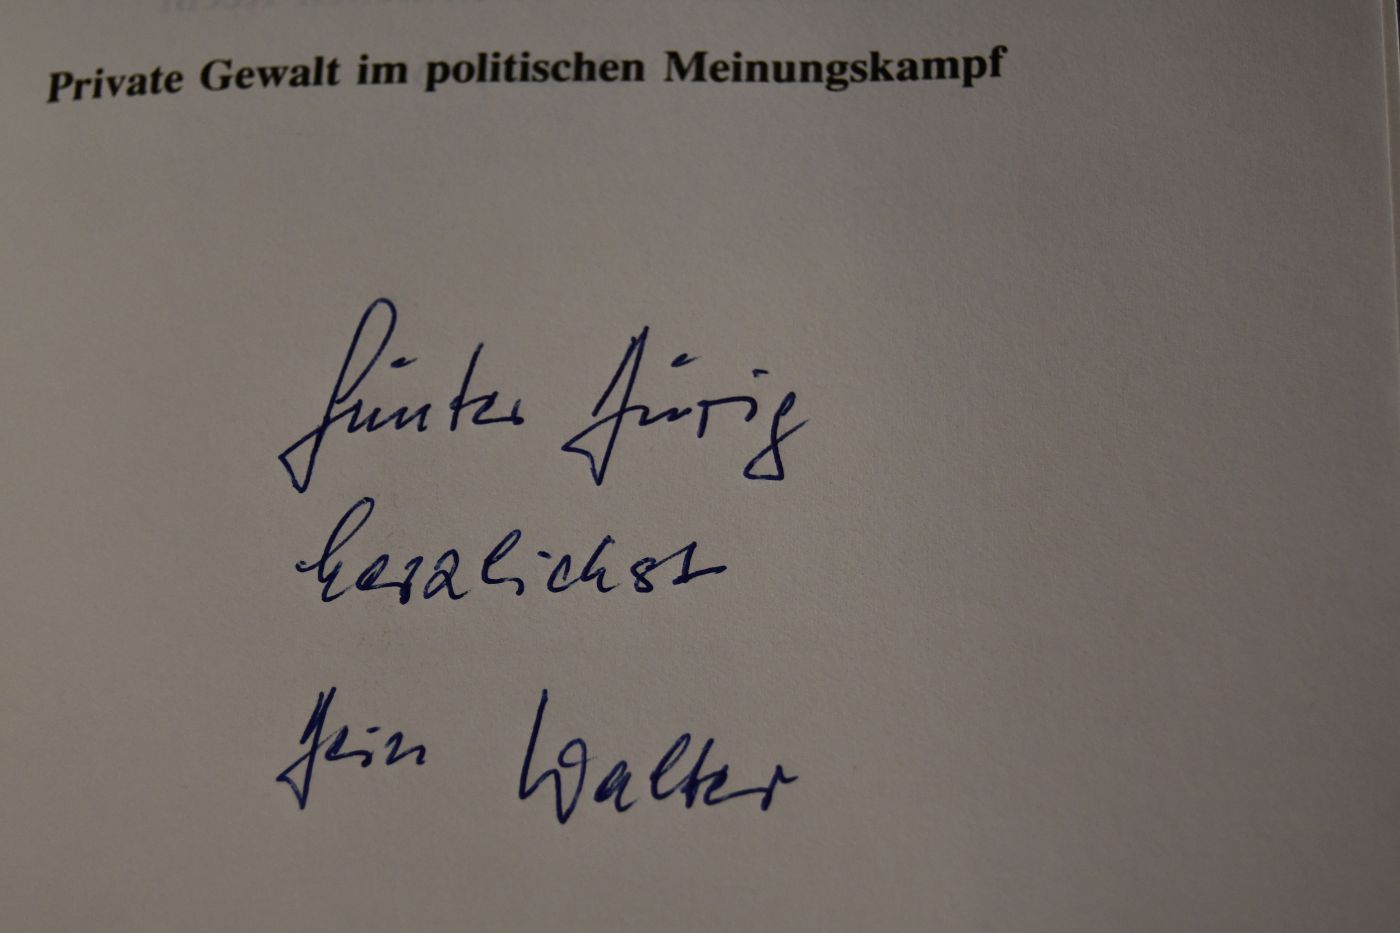 Private Gewalt im politischen Meinungskampf
Günter Dürig
herzlichst
Dein Walter